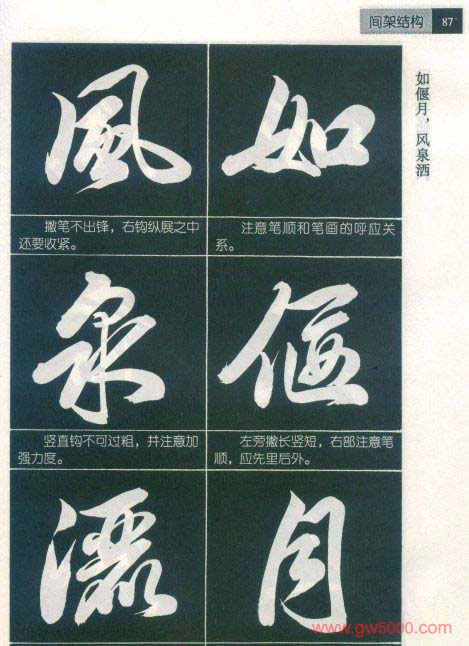 间架结构 87
如偃月，风泉洒
如
注意笔顺和笔画的呼应关
系。
偃
左旁撇长竖短，右部注意笔
顺，应先里后外。
月
風
撇笔不出锋，右钩纵展之中
还要收紧。
泉
竖直钩不可过粗，并注意加
强力度。
灑
www.gw5000.com